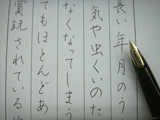 長い年月のう
気や虫くいのた
なくなってしまう
てもほとんどあ
実現されている